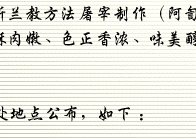 斯兰教方法屠宰制作（阿訇
酥肉嫩、色正香浓、味美醇
处地点公布，如下：